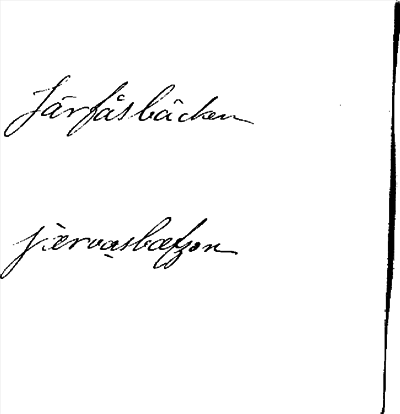 Järfåsbäcken
jærvasbæƶon